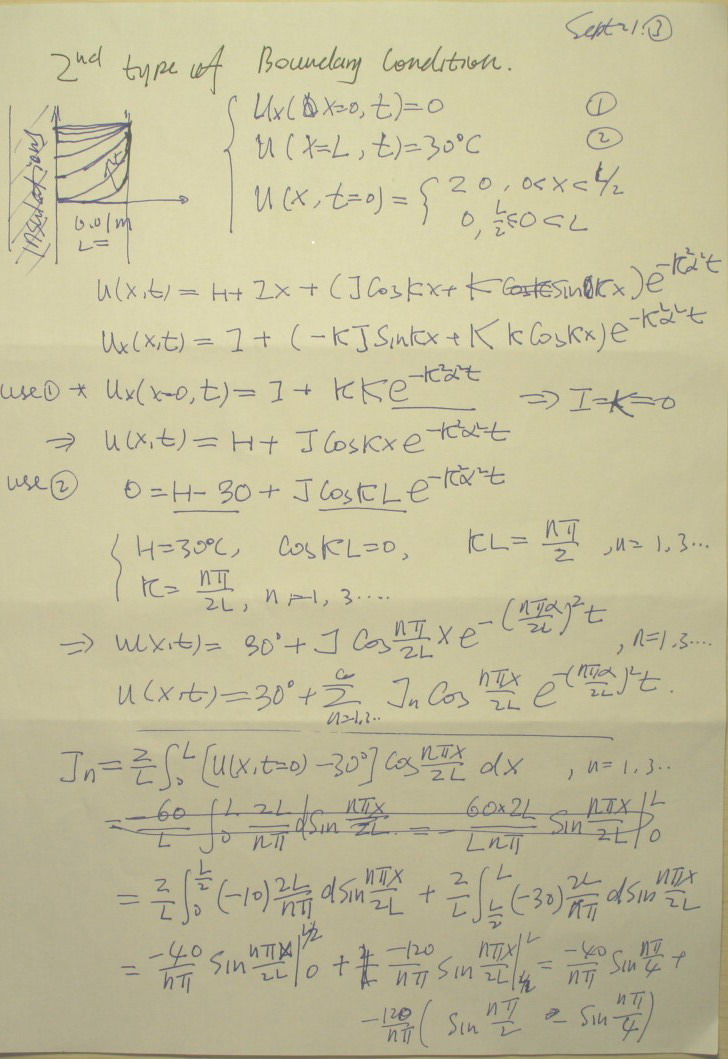 Sept 21. ③
2nd type of Boundary Condition.
Insulations
0.01m
L=
Ux(x=0, t)=0 ①
U(x=L, t)=30°C ②
U(x, t=0) = { 20, 0<x<L/2
0, L/2≤0<L
U(x,t) = H + Ix + (J cos kx + K sin kx) e^{-k²α²t}
Ux(x,t) = I + (-kJ sin kx + K k cos kx) e^{-k²α²t}
use ① * Ux(x=0, t) = I + kK e^{-k²α²t} ⇒ I=K=0
⇒ U(x,t) = H + J cos kx e^{-k²α²t}
use ② 0 = H-30 + J cos kL e^{-k²α²t}
{ H=30°C, cos kL=0, kL = nπ/2, n=1,3...
k = nπ/2L, n=1,3....
⇒ U(x,t) = 30° + J cos nπ/2L x e^{-(nπα/2L)²t}, n=1,3...
U(x,t) = 30° + ∑_{n=1,3..}^{∞} Jn cos nπx/2L e^{-(nπα/2L)²t}.
Jn = 2/L ∫_0^L [U(x,t=0) -30°] cos nπx/2L dx, n=1,3..
= -60/L ∫_0^L 2L/nπ d sin nπx/2L = - 60×2L/Lnπ sin nπx/2L |_0^L
= 2/L ∫_0^{L/2} (-10) 2L/nπ d sin nπx/2L + 2/L ∫_{L/2}^L (-30) 2L/nπ d sin nπx/2L
= -40/nπ sin nπx/2L |_0^{L/2} + -120/nπ sin nπx/2L |_{L/2}^L = -40/nπ sin nπ/4 +
-120/nπ ( sin nπ/2 - sin nπ/4 )